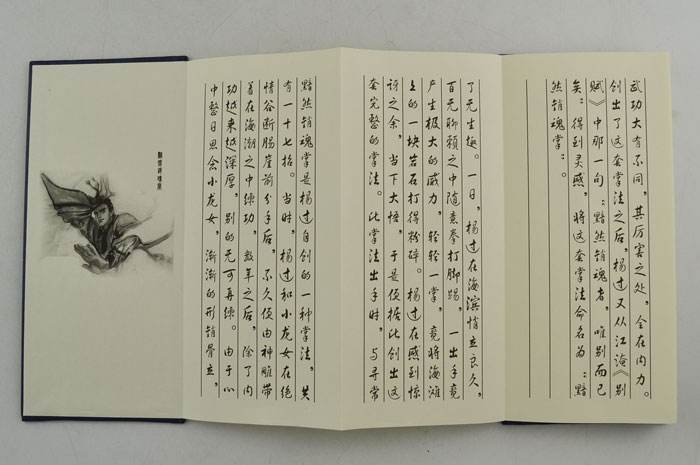 黯然銷魂掌
黯然销魂掌是杨过自创的一种掌法，共
有一十七招。当时，杨过和小龙女在绝
情谷断肠崖前分手后，不久便由神雕带
着在海潮之中练功，数年之后，除了内
功越来越深厚，别的无可再练。由于心
中整日思念小龙女，渐渐的形销骨立，
了无生趣。一日，杨过在海滨悄立良久，
百无聊赖之中随意拳打脚踢，一出手竟
产生极大的威力，轻轻一掌，竟将海滩
上的一块岩石打得粉碎。杨过在感到惊
讶之余，当下大悟，于是便据此创出这
套完整的掌法。此掌法出手时，与寻常
武功大有不同，其厉害之处，全在内力。
创出了这套掌法之后，杨过又从江淹《别
赋》中那一句：黯然销魂者，唯别而已
矣：得到灵感，将这套掌法命名为：黯
然销魂掌：。